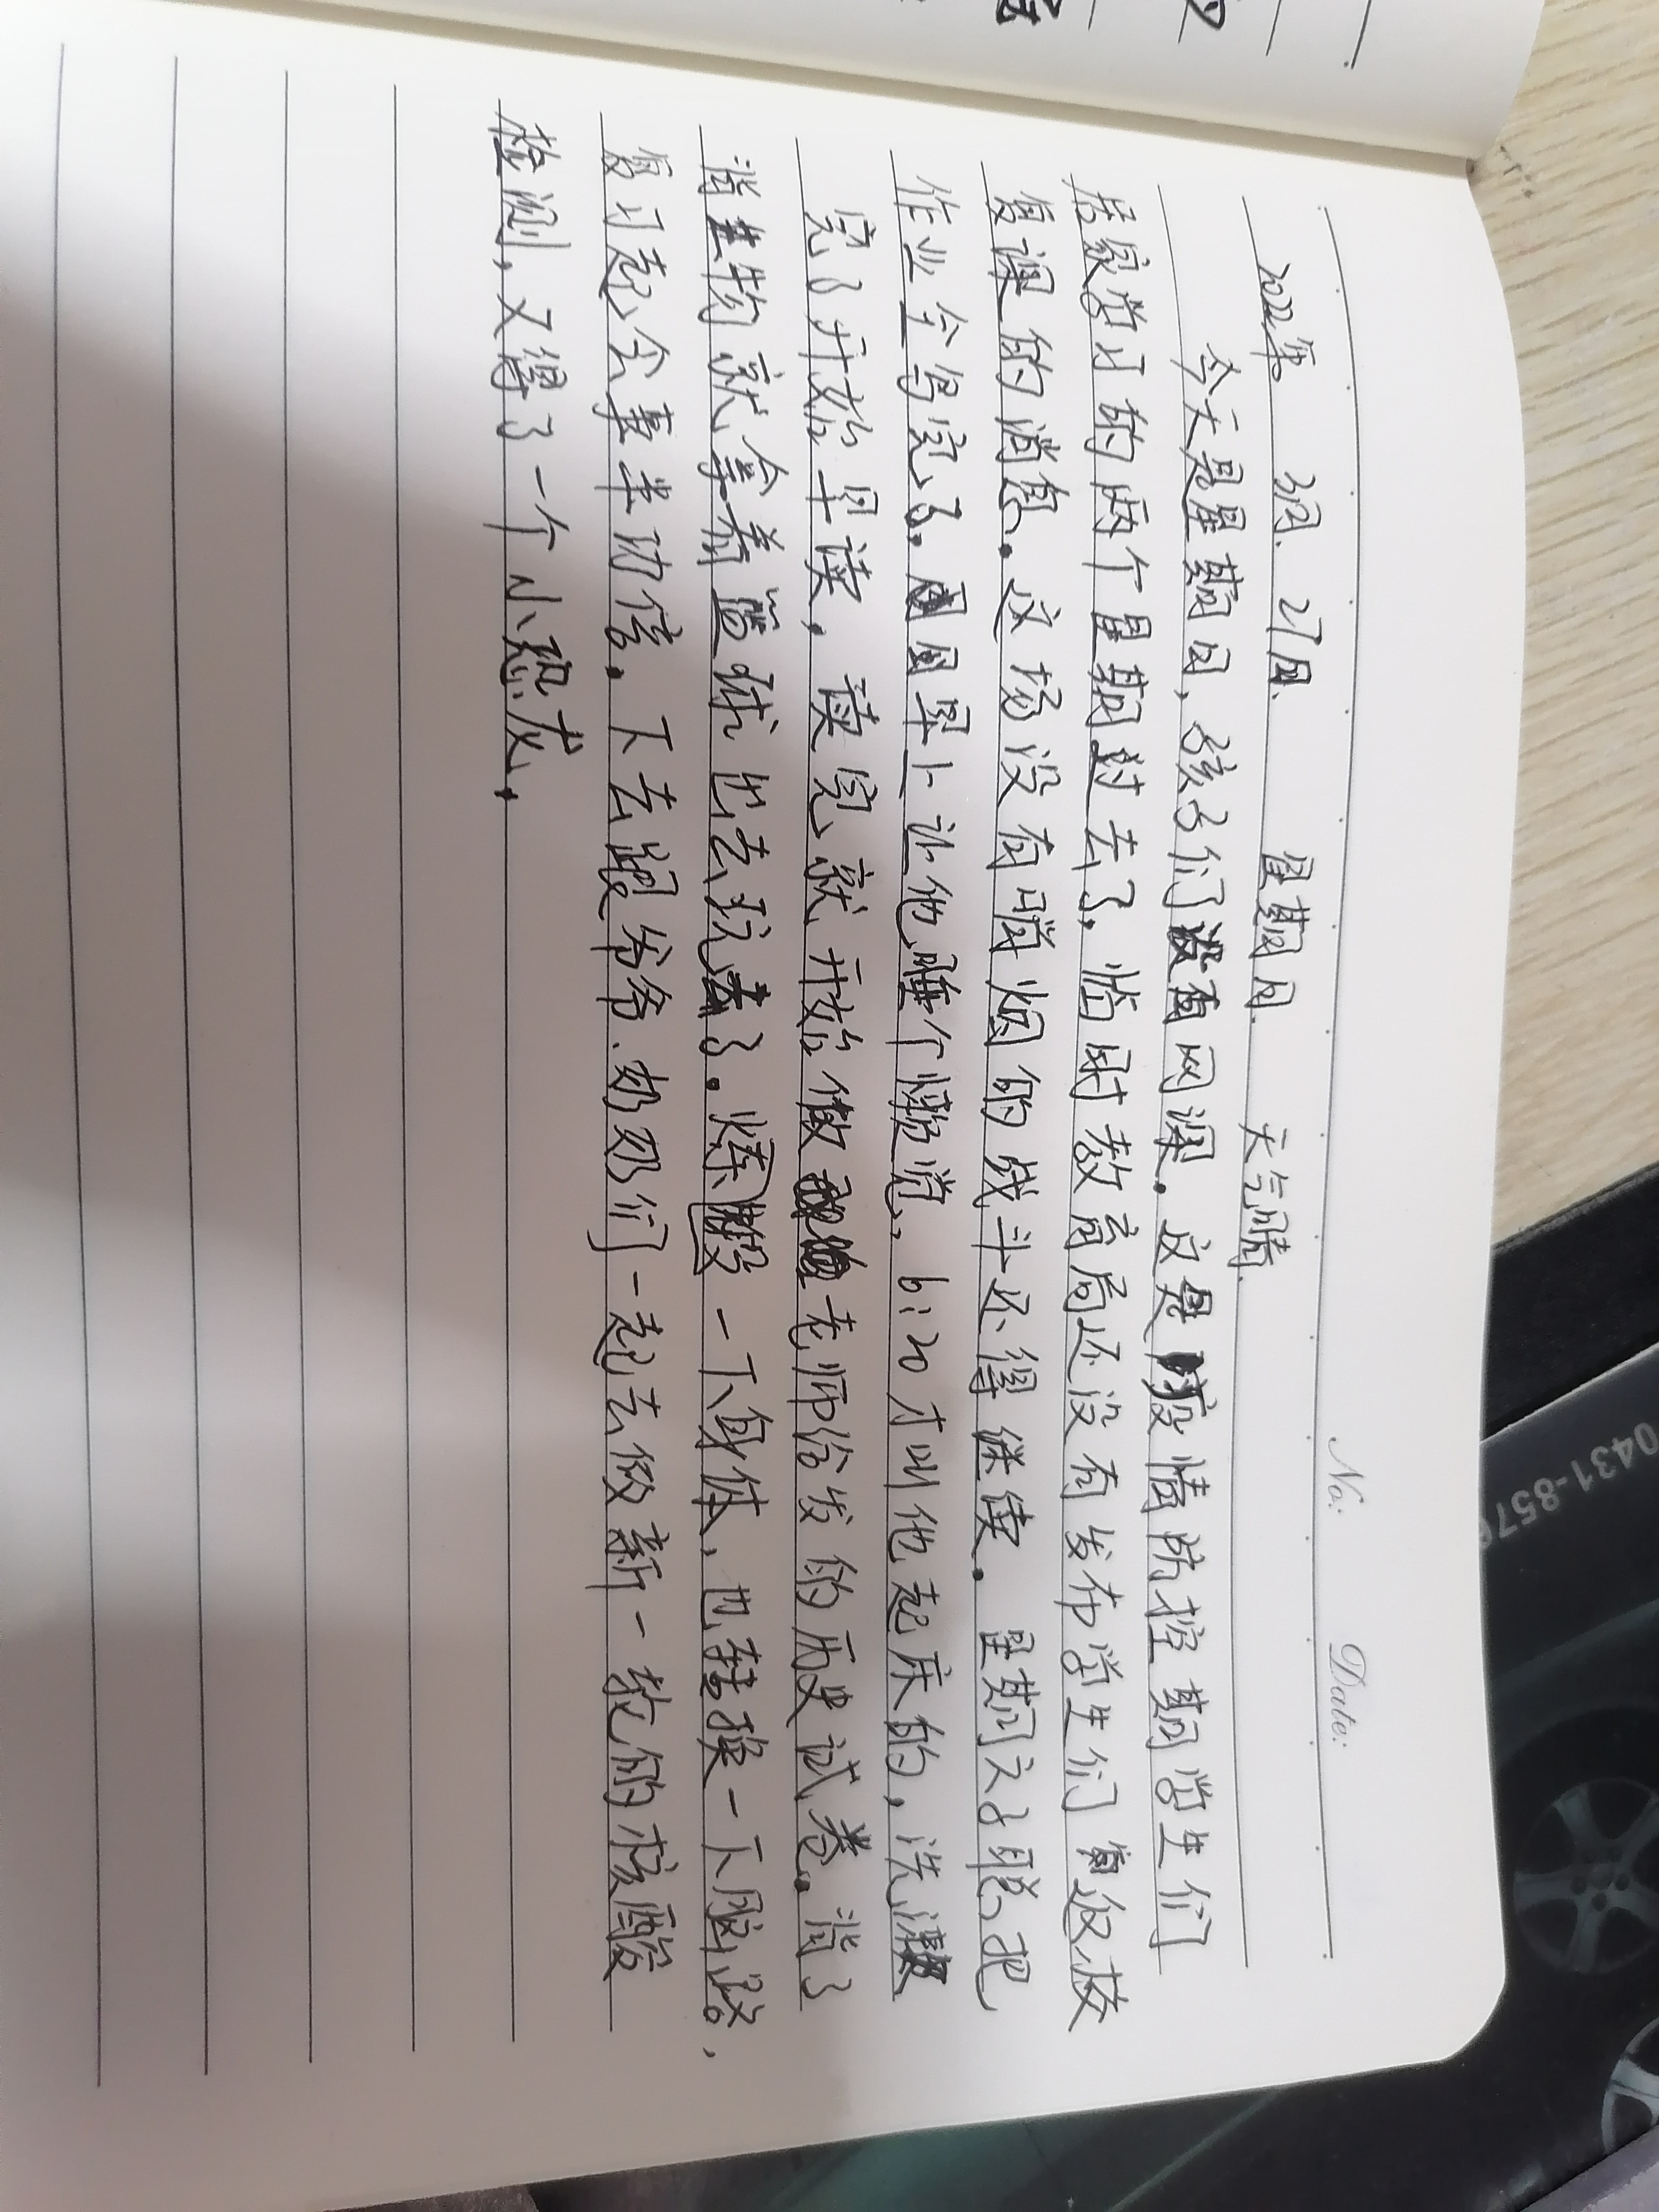 No:
Date:
2022年 3月 27日 星期日 天气晴
今天是星期日,孩子们没有网课。这是疫情防控期学生们
居家学习的两个星期过去了,临时教育局还没有发布学生们复返校
复课的消息。这场没有硝烟的战斗还得继续。星期六子聪把
作业全写完了。周日早上让他睡个懒觉,6:20才叫他起床的,洗漱
完了开始早读,读完就开始做老师给发的历史试卷。背了
背生物就拿着篮球也去玩去了。炼锻一下身体,也转换一下脑路,
复习起会事半功倍。下去跟爷爷、奶奶们一起去做新一轮的核酸
检测,又得了一个小恐龙。
0431-857